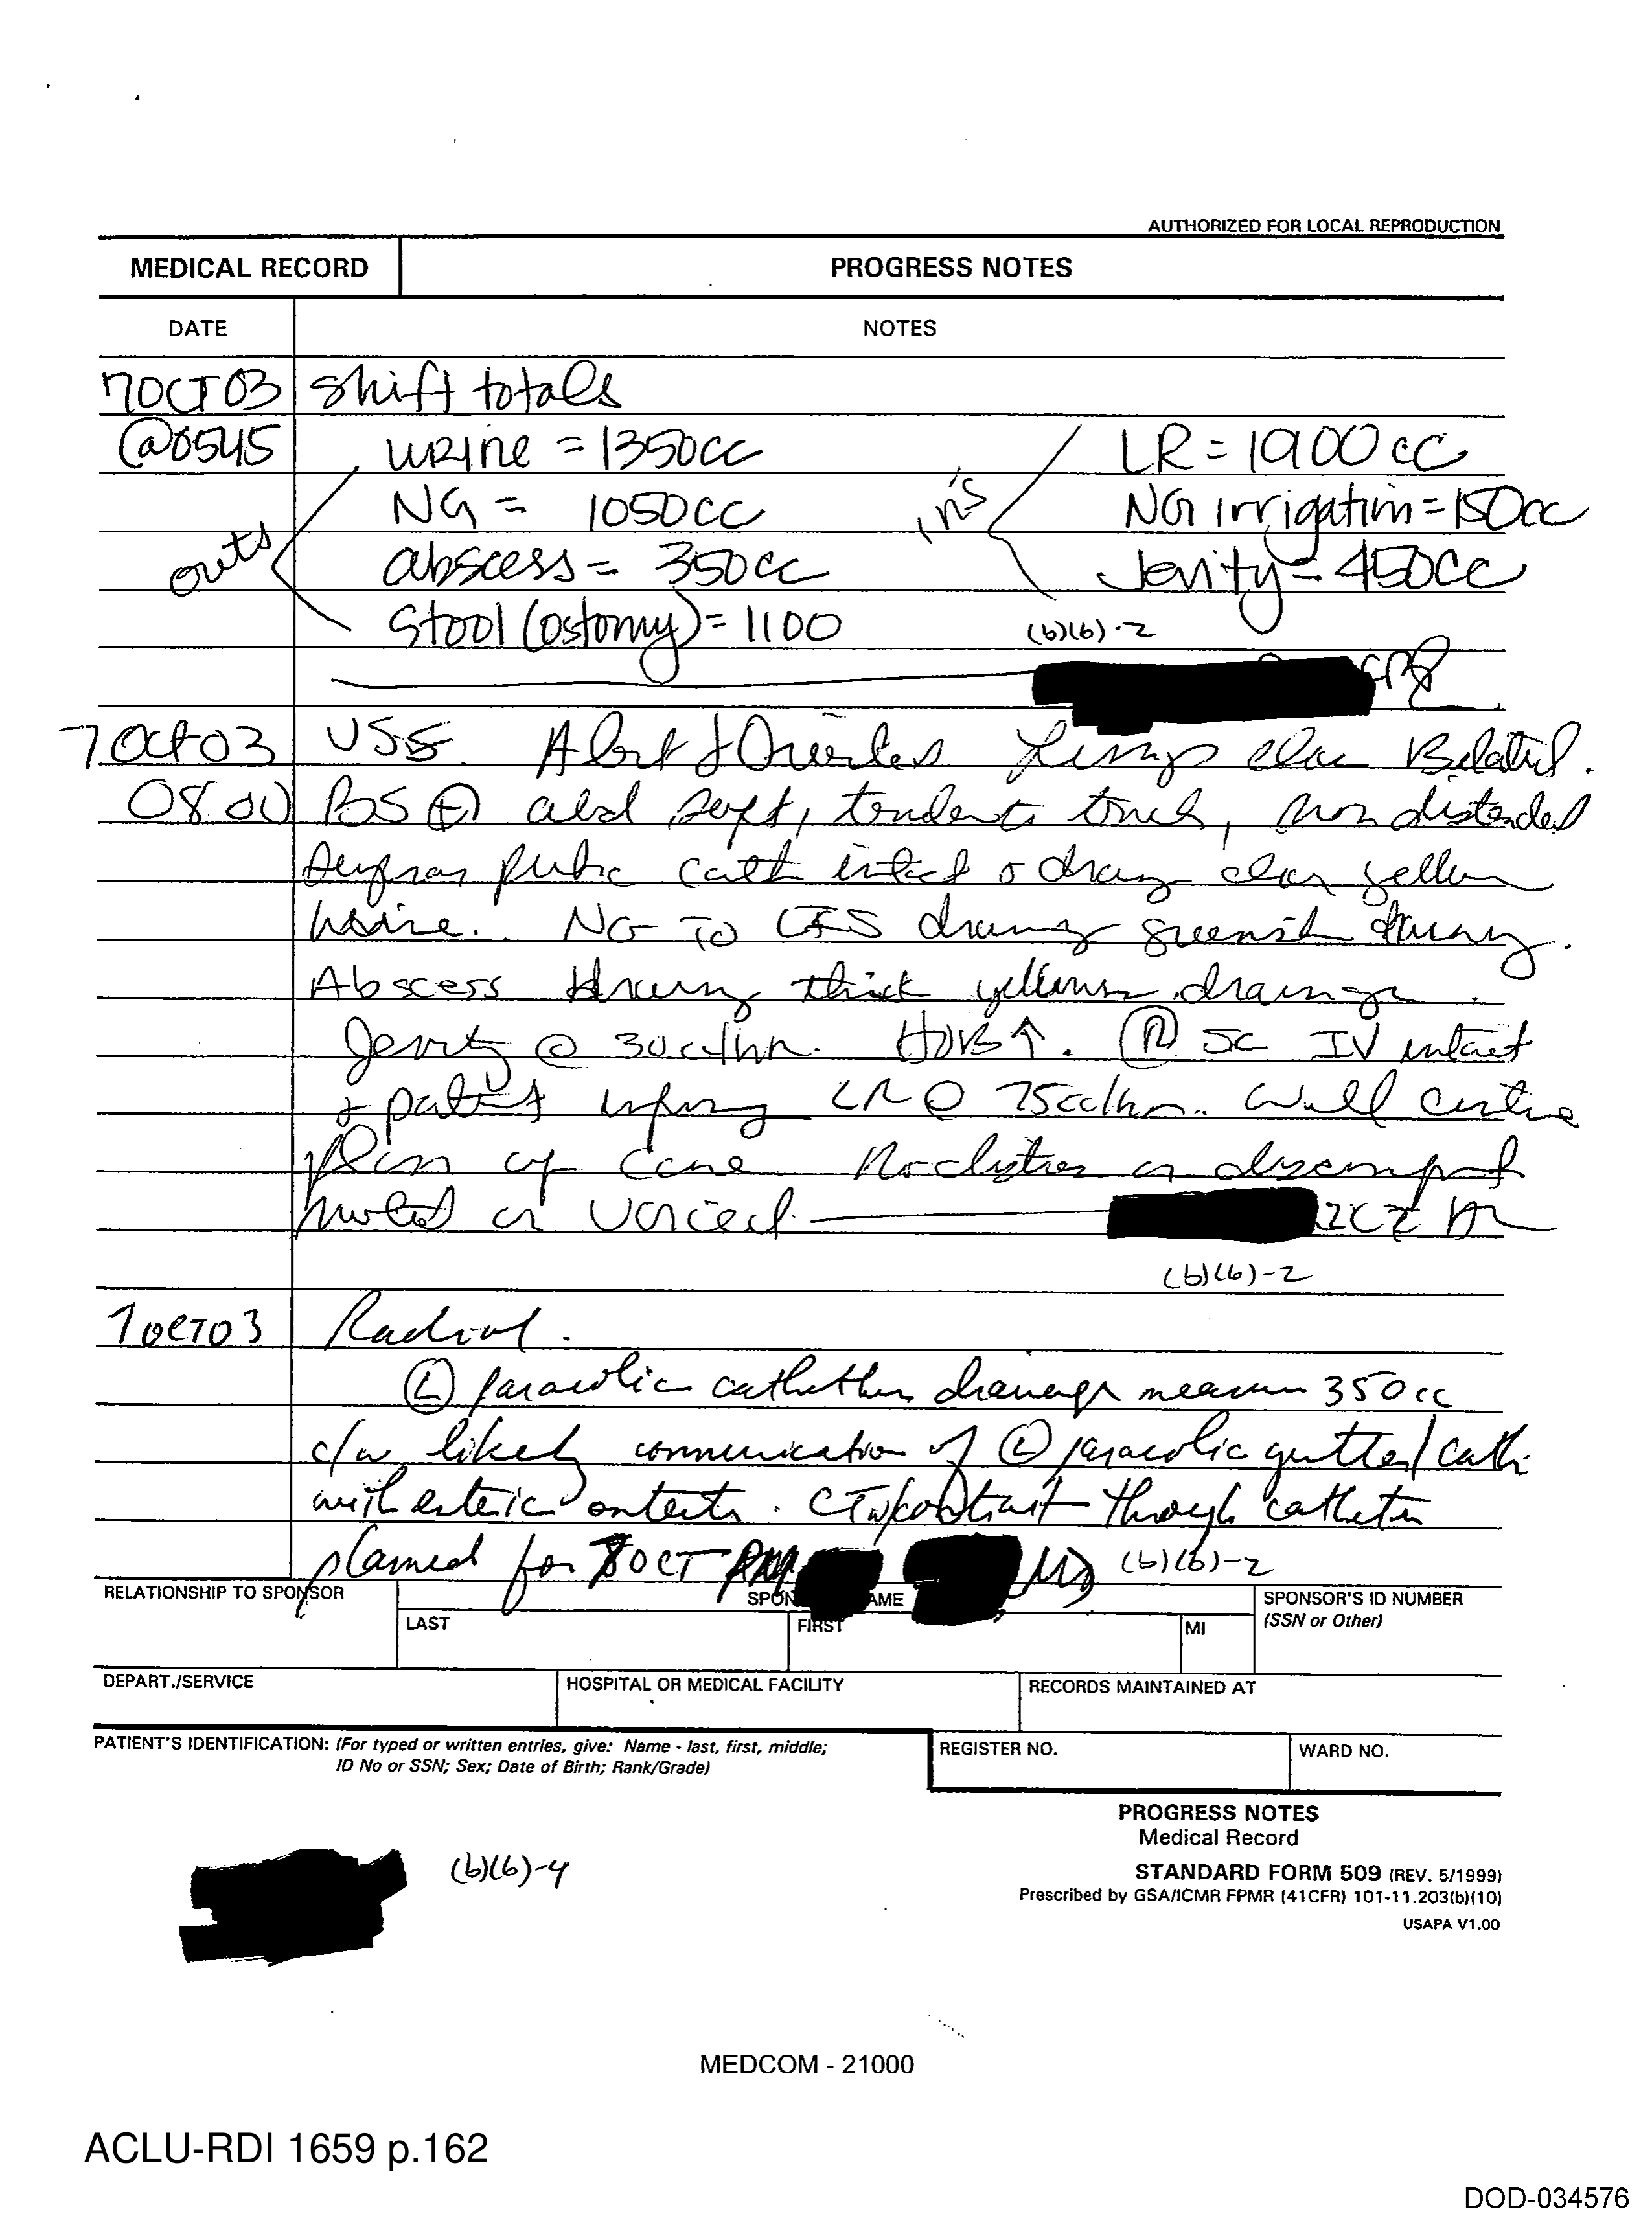 AUTHORIZED FOR LOCAL REPRODUCTION
MEDICAL RECORD PROGRESS NOTES
DATE NOTES
7OCT03 shift totals
@0545 urine = 1350cc LR = 1900cc
outs NG = 1050cc in's NG irrigation = 150cc
abscess = 350cc Jevity = 450cc
Stool (ostomy) = 1100 (b)(6)-2
7 Oct 03 VSS. Alert & Oriented Lungs clear Bilateral.
0800 BS ⊕ abd soft, tender to touch, non distended
Suprapubic cath intact & draing clear yellow
urine. NG to LIS draing greenish
Abscess draing thick yellow drainage.
Jevity @ 30cc/hr. HOB↑. Ⓡ SC IV intact
& patent infusing LR @ 75cc/hr. Will continue
plan of care No distress or discomfort
noted or voiced
(b)(6)-2
7OCT03 Radiol.
Ⓛ paracolic catheter drainage measures 350cc
c/w likely communication of Ⓛ paracolic gutter/cath
with enteric contents. CT w/contrast through catheter
planned for 8OCT MD (b)(6)-2
RELATIONSHIP TO SPONSOR
SPON AME
SPONSOR'S ID NUMBER
(SSN or Other)
LAST FIRST MI
DEPART./SERVICE HOSPITAL OR MEDICAL FACILITY RECORDS MAINTAINED AT
PATIENT'S IDENTIFICATION: (For typed or written entries, give: Name - last, first, middle;
ID No or SSN; Sex; Date of Birth; Rank/Grade)
REGISTER NO. WARD NO.
PROGRESS NOTES
Medical Record
STANDARD FORM 509 (REV. 5/1999)
Prescribed by GSA/ICMR FPMR (41CFR) 101-11.203(b)(10)
USAPA V1.00
(b)(6)-4
MEDCOM - 21000
ACLU-RDI 1659 p.162
DOD-034576